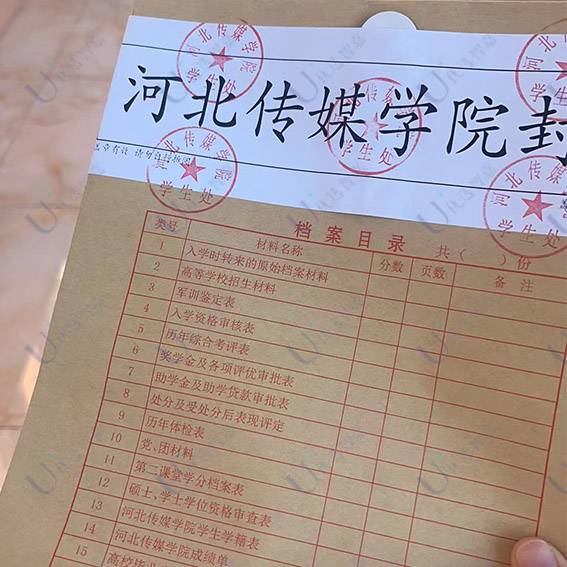 河北传媒学院封
河北传媒学院
学生处
河北传媒学院
学生处
传媒
学生处
河北传媒学院
学生处
档案目录 共( )份
类号 材料名称 分数 页数 备注
1 入学时转来的原始档案材料
2 高等学校招生材料
3 军训鉴定表
4 入学资格审核表
5 历年综合考评表
6 奖学金及各项评优审批表
7 助学金及助学贷款审批表
8 处分及受处分后表现评定
9 历年体检表
10 党、团材料
11 第二课堂学分档案表
12 硕士、学士学位资格审查表
13 河北传媒学院学生学籍表
14 河北传媒学院成绩单
15 高校毕业